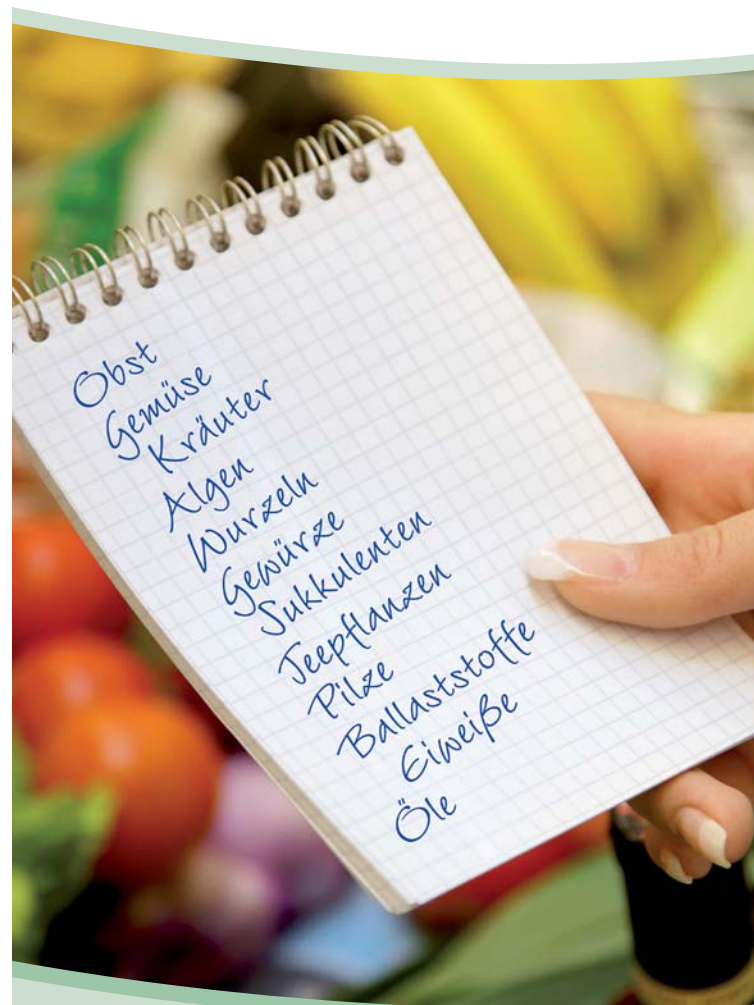 Obst
Gemüse
Kräuter
Algen
Wurzeln
Gewürze
Sukkulenten
Teepflanzen
Pilze
Ballaststoffe
Eiweiße
Öle